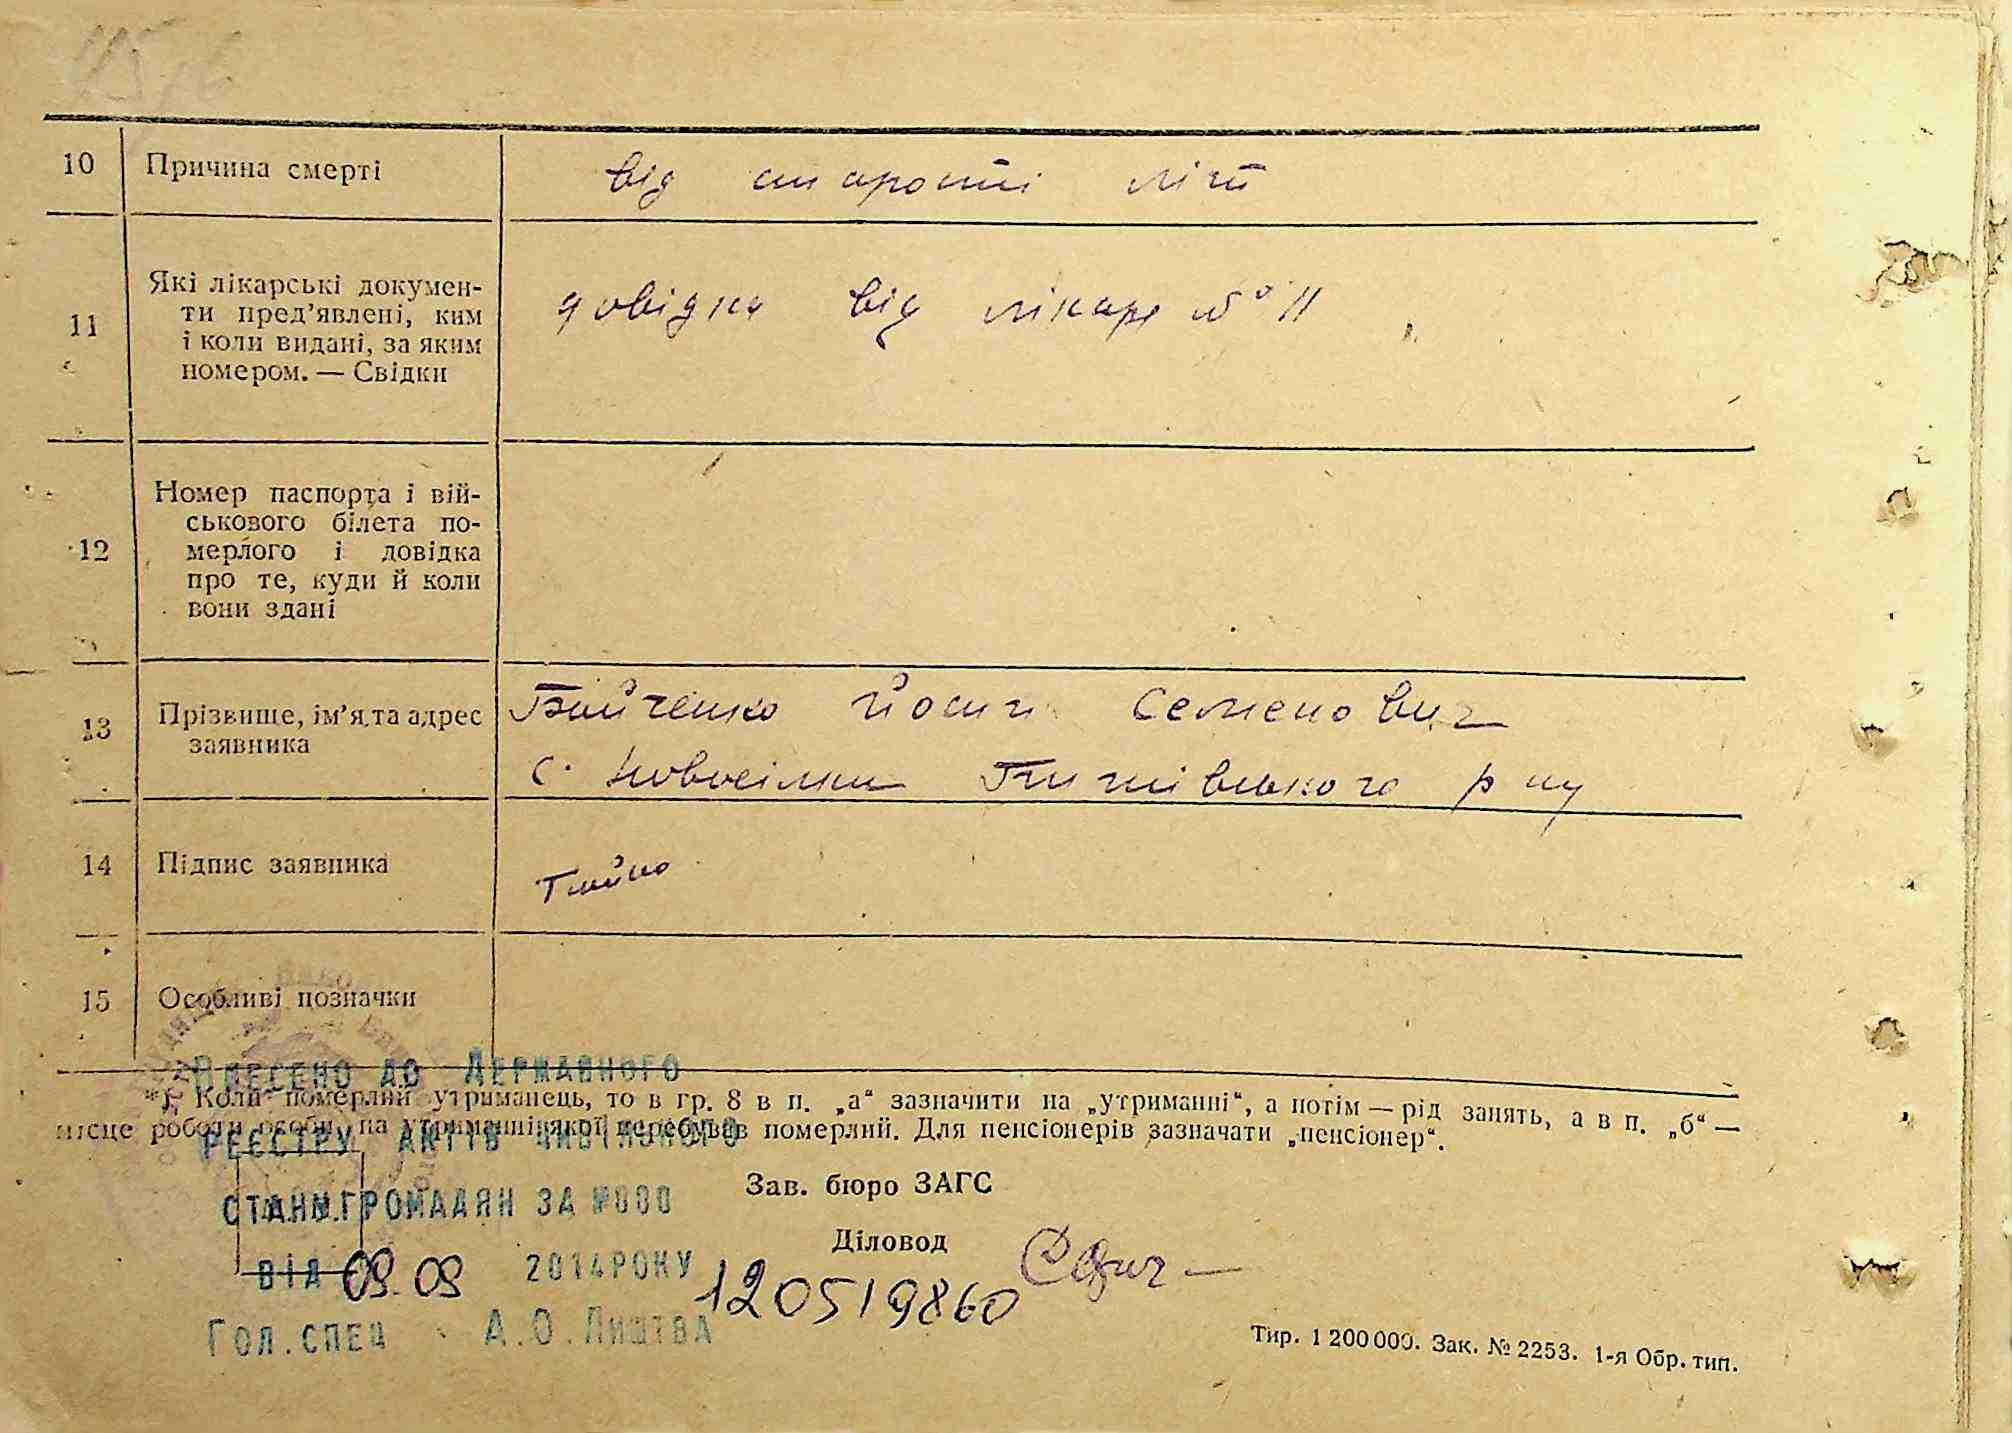 10 Причина смерті
від старости літ
11 Які лікарські докумен-
ти пред'явлені, ким
і коли видані, за яким
номером. — Свідки
довідка від лікаря № 11
12 Номер паспорта і вій-
ськового білета по-
мерлого і довідка
про те, куди й коли
вони здані
13 Прізвище, ім'я та адрес
заявника
Бойченко Йосип Семенович
с. Новосілки р ну
14 Підпис заявника
15 Особливі позначки
Внесено до Державного
*) Коли померлий утриманець, то в гр. 8 в п. „а“ зазначити на „утриманні“, а потім — рід занять, а в п. „б“ —
місце роботи особи, на утриманні якої перебував померлий. Для пенсіонерів зазначати „пенсіонер“.
реєстру актів цивільного
Зав. бюро ЗАГС
стану громадян за №000
Діловод
від 09.09 2014 року
120519860
Гол. спец А.О. Лиштва
Тир. 1 200 000. Зак. № 2253. 1-я Обр. тип.